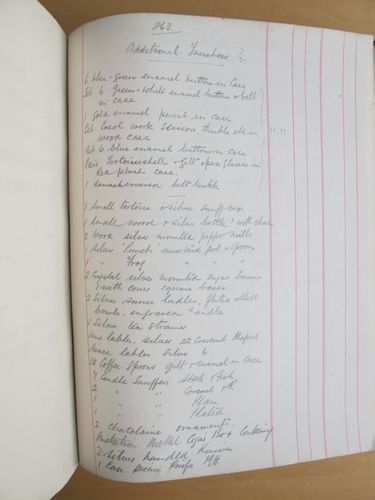 263.
Additional Lawshers ?
6 blue-green enamel buttons in Case
Set 6 Green-white enamel buttons & belt
in case
1 gold enamel pencil in case
Set Coral work scissors, thimble etc in
wood case
Set 6 blue enamel buttons in case
Pair Tortoiseshell & Gilt opera glasses in
Red plush case.
1 enamel covered belt buckle
1 Small tortoise & silver snuff box
1 Small wood & silver bottle ? with chain
2 Wood silver mounted pepper mills
1 Silver "Punch" mustard pot & spoon
1 " Frog " " "
2 Crystal silver mounted sugar basins
1 with cover square bases
2 Silver sauce ladles, fluted shell
bowls - engraved handle
1 Silver tea strainer
Wine lables, silver 22 Crescent Shaped
Sauce lables Silver 6
12 Coffee Spoons gilt & enamel in case
4 Candle Snuffers Stork & Fish
2 " " Coronet & R
1 " " Plain
1 " " Plated
2 Chatelaine ornaments.
Imitation Metal Cigar Box Containing
3 silver handled
1 Case